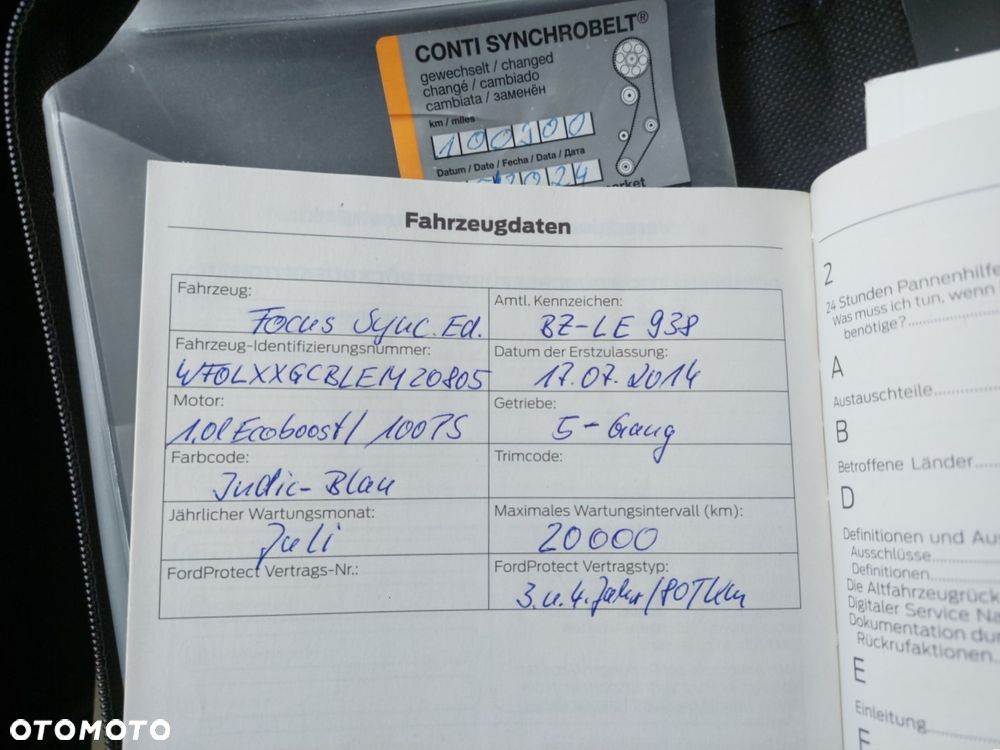 CONTI SYNCHROBELT®
gewechselt / changed
changé / cambiado
cambiata / заменён
km / miles
100900
Datum / Date / Fecha / Data / Дата
2024
Fahrzeugdaten
Fahrzeug:
Focus Sync. Ed.
Amtl. Kennzeichen:
BZ-LE 938
Fahrzeug-Identifizierungsnummer:
WF0LXXGCBLEM20805
Datum der Erstzulassung:
17.07.2014
Motor:
1.0l Ecoboost / 100PS
Getriebe:
5-Gang
Farbcode:
Indic-Blau
Trimcode:
Jährlicher Wartungsmonat:
Juli
Maximales Wartungsintervall (km):
20000
FordProtect Vertrags-Nr.:
FordProtect Vertragstyp:
3. u. 4. Jahr / 80Tkm
2
24 Stunden Pannenhilfe
Was muss ich tun, wenn
benötige?
A
Austauschteile
B
Betroffene Länder
D
Definitionen und Aus
Ausschlüsse
Definitionen
Die Altfahrzeugrück
Digitaler Service Na
Dokumentation dur
Rückrufaktionen
E
Einleitung
F
OTOMOTO